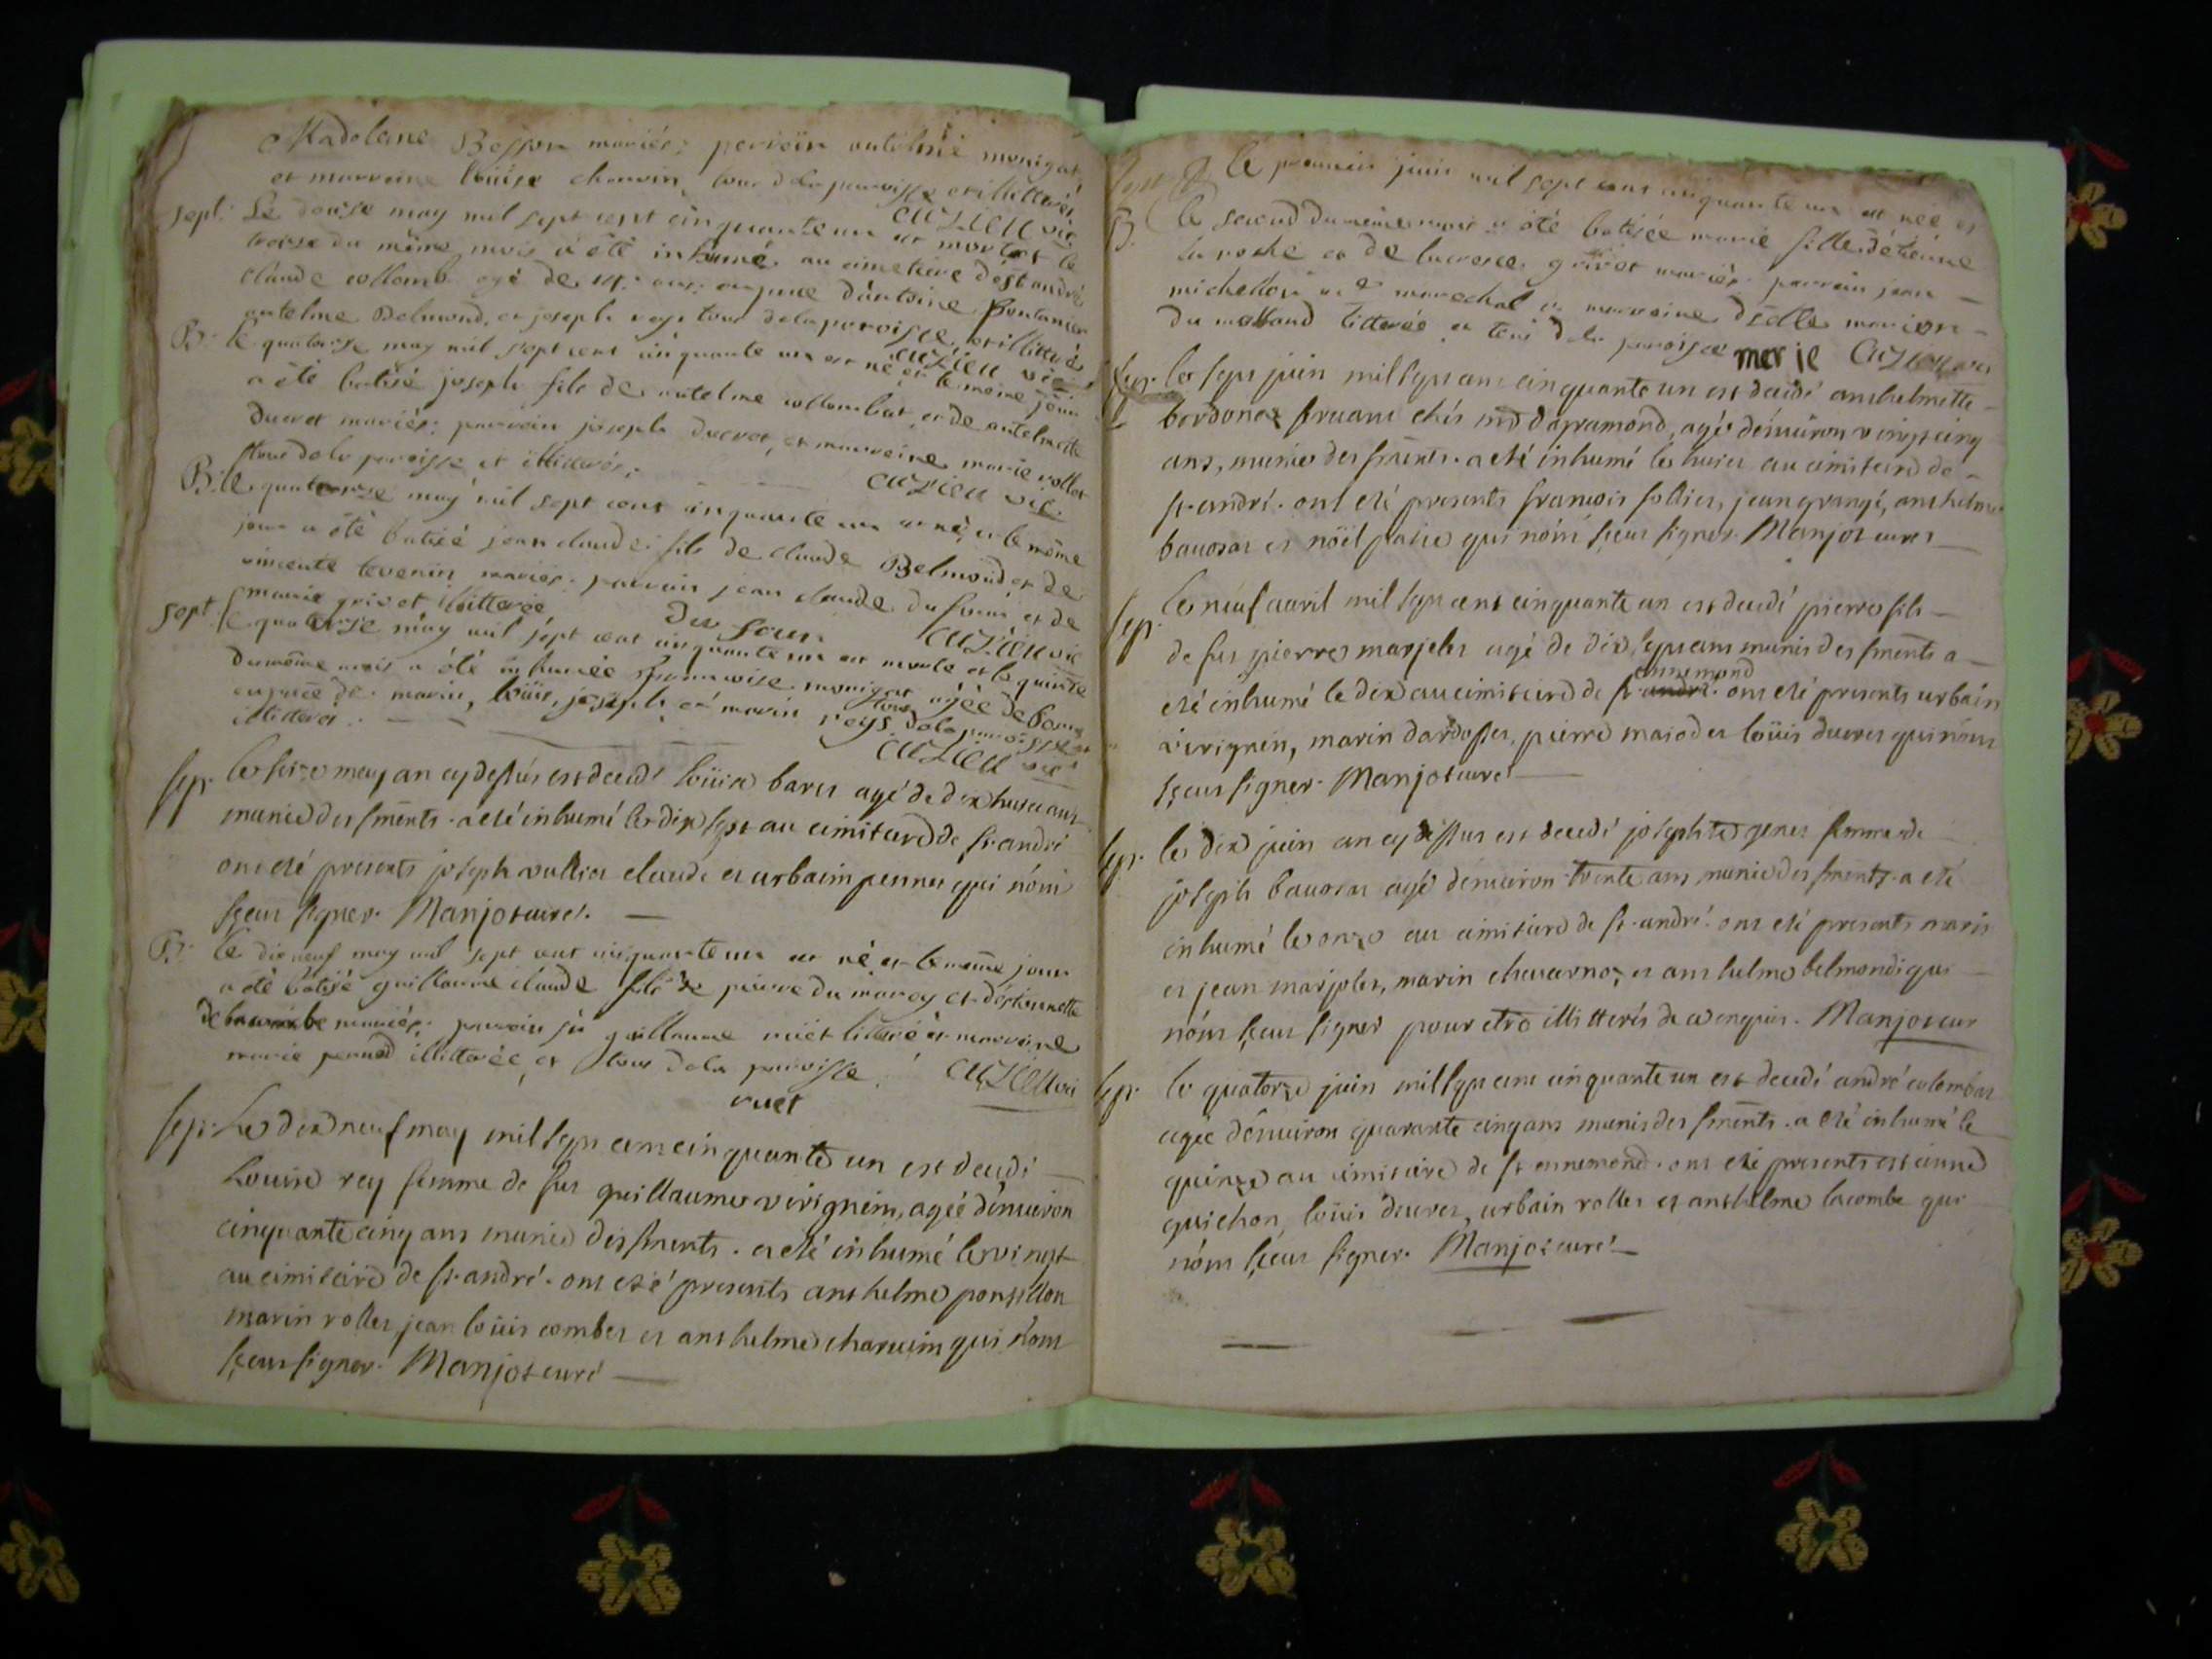 Madeleine Besson mariés: parrein antelme monigat
et marreine loüise charvin, tous dela paroisse et illitterés
cuzieu vic
sept. Le douse may mil sept cent cinquante un est mort et le
treise du même mois a été inhumé au cimetiere de st andré
claude collomb agé de 14: ans: en presence d'antoine fontanier
antelme Belmond, et joseph reys tous dela paroisse et illitterés
cuzieu vic
B: le quatorse may mil sept cent cinquante un est né et le meme jour
a été batisé joseph fils de antelme collombat, et de antelmette
ducret mariés: parrein joseph ducret, et marreine marie rollet
tous dela paroisse et illitterés:
cuzieu vic.
B: le quatorse may mil sept cent cinquante un est né, et le même
jour a été batisé jean claude fils de claude Belmond, et de
vincente tevenin mariés: parrein jean claude du four, et de
marie grivot litterée
du four cuzieu vic
sept. le quatorse may mil sept cent cinquante un est morte et le quinse
du même mois a été inhumée francoise monigat agée de
en presence de marin, loüis, joseph et marin reys tous dela paroisse et
illitterés
cuzieu vic
sep. le seize may an cy dessus est decedé loüise baret agé de dix huict ans
munie des sments. a eté inhumé le dix sept au cimitiere de st. andré
ont eté presents joseph vullier claude et urbain pernet qui n'ont
sçeu signer. Manjot curé.
B. le dixneuf may mil sept cent cinquante un est né et le même jour
a été batisé guillaume claude fils de pierre du marey et d'etiennette
debarbe mariés: parrein sr guillaume ruet litteré et marreine
marie perned illitterée, et tous dela paroisse. cuzieu vic
ruet
sep: Le dix neuf may mil sept cent cinquante un est decedé
Louise rey femme de feu guillaume virignin, agée d'environ
cinquante cinq ans munie des sments. a eté inhumé le vingt
au cimitiere de st. andré. ont eté presents anthelme ponsillon
marin rollet, jean loüis combet et anthelme charvin qui n'ont
sçeu signer. Manjot curé
le premier juin mil sept cent cinquante un est née et
B. le second du même mois a été batisée marie fille d'étiene
la roche et de lucrece grivot mariés: parrein jean
michellon marechal et marreine dlle marion
du mollard litterée et tous dela paroisse merje cuzieu vic
sep. le sept juin mil sept cent cinquante un est decedé anthelmette
bordonet servante chés d'apramond, agé d'environ vingt cinq
ans, munie des sments. a eté inhumé le huict au cimitiere de
st. andré. ont eté presents francois sollier, jean grangé, anthelme
bavosat et nöel patie qui n'ont sçeu signer. Manjot curé
sep. le neuf avril mil sept cent cinquante un est decedé pierre fils
de feu pierre marjolet agé de dix sept ans munis des sments a
eté inhumé le dix au cimitiere de st. andré ennemond ont eté presents urbain
virignin, marin dardosset, pierre maiodet loüis ducret qui n'ont
sçeu signer. Manjot curé
sep. le dix juin an cy dessus est decedé josephte genet femme de
joseph bavosat agé d'environ trente ans munie des sments. a eté
inhumé le onze au cimitiere de st. andré. ont eté presents maris
et jean marjolet, marin chavarnoz, et anthelme belmond qui
n'ont sçeu signer pour etre illitterés de ce enquis. Manjot cur
sep. le quatorze juin mil sept cent cinquante un est decedé andré colombat
agée d'environ quarante cinq ans munis des sments. a eté inhumé le
quinze au cimitiere de st ennemond. ont eté presents estienne
guichon, loüis ducret, urbain rollet et anthelme lacombe qui
n'ont sçeu signer. Manjot curé